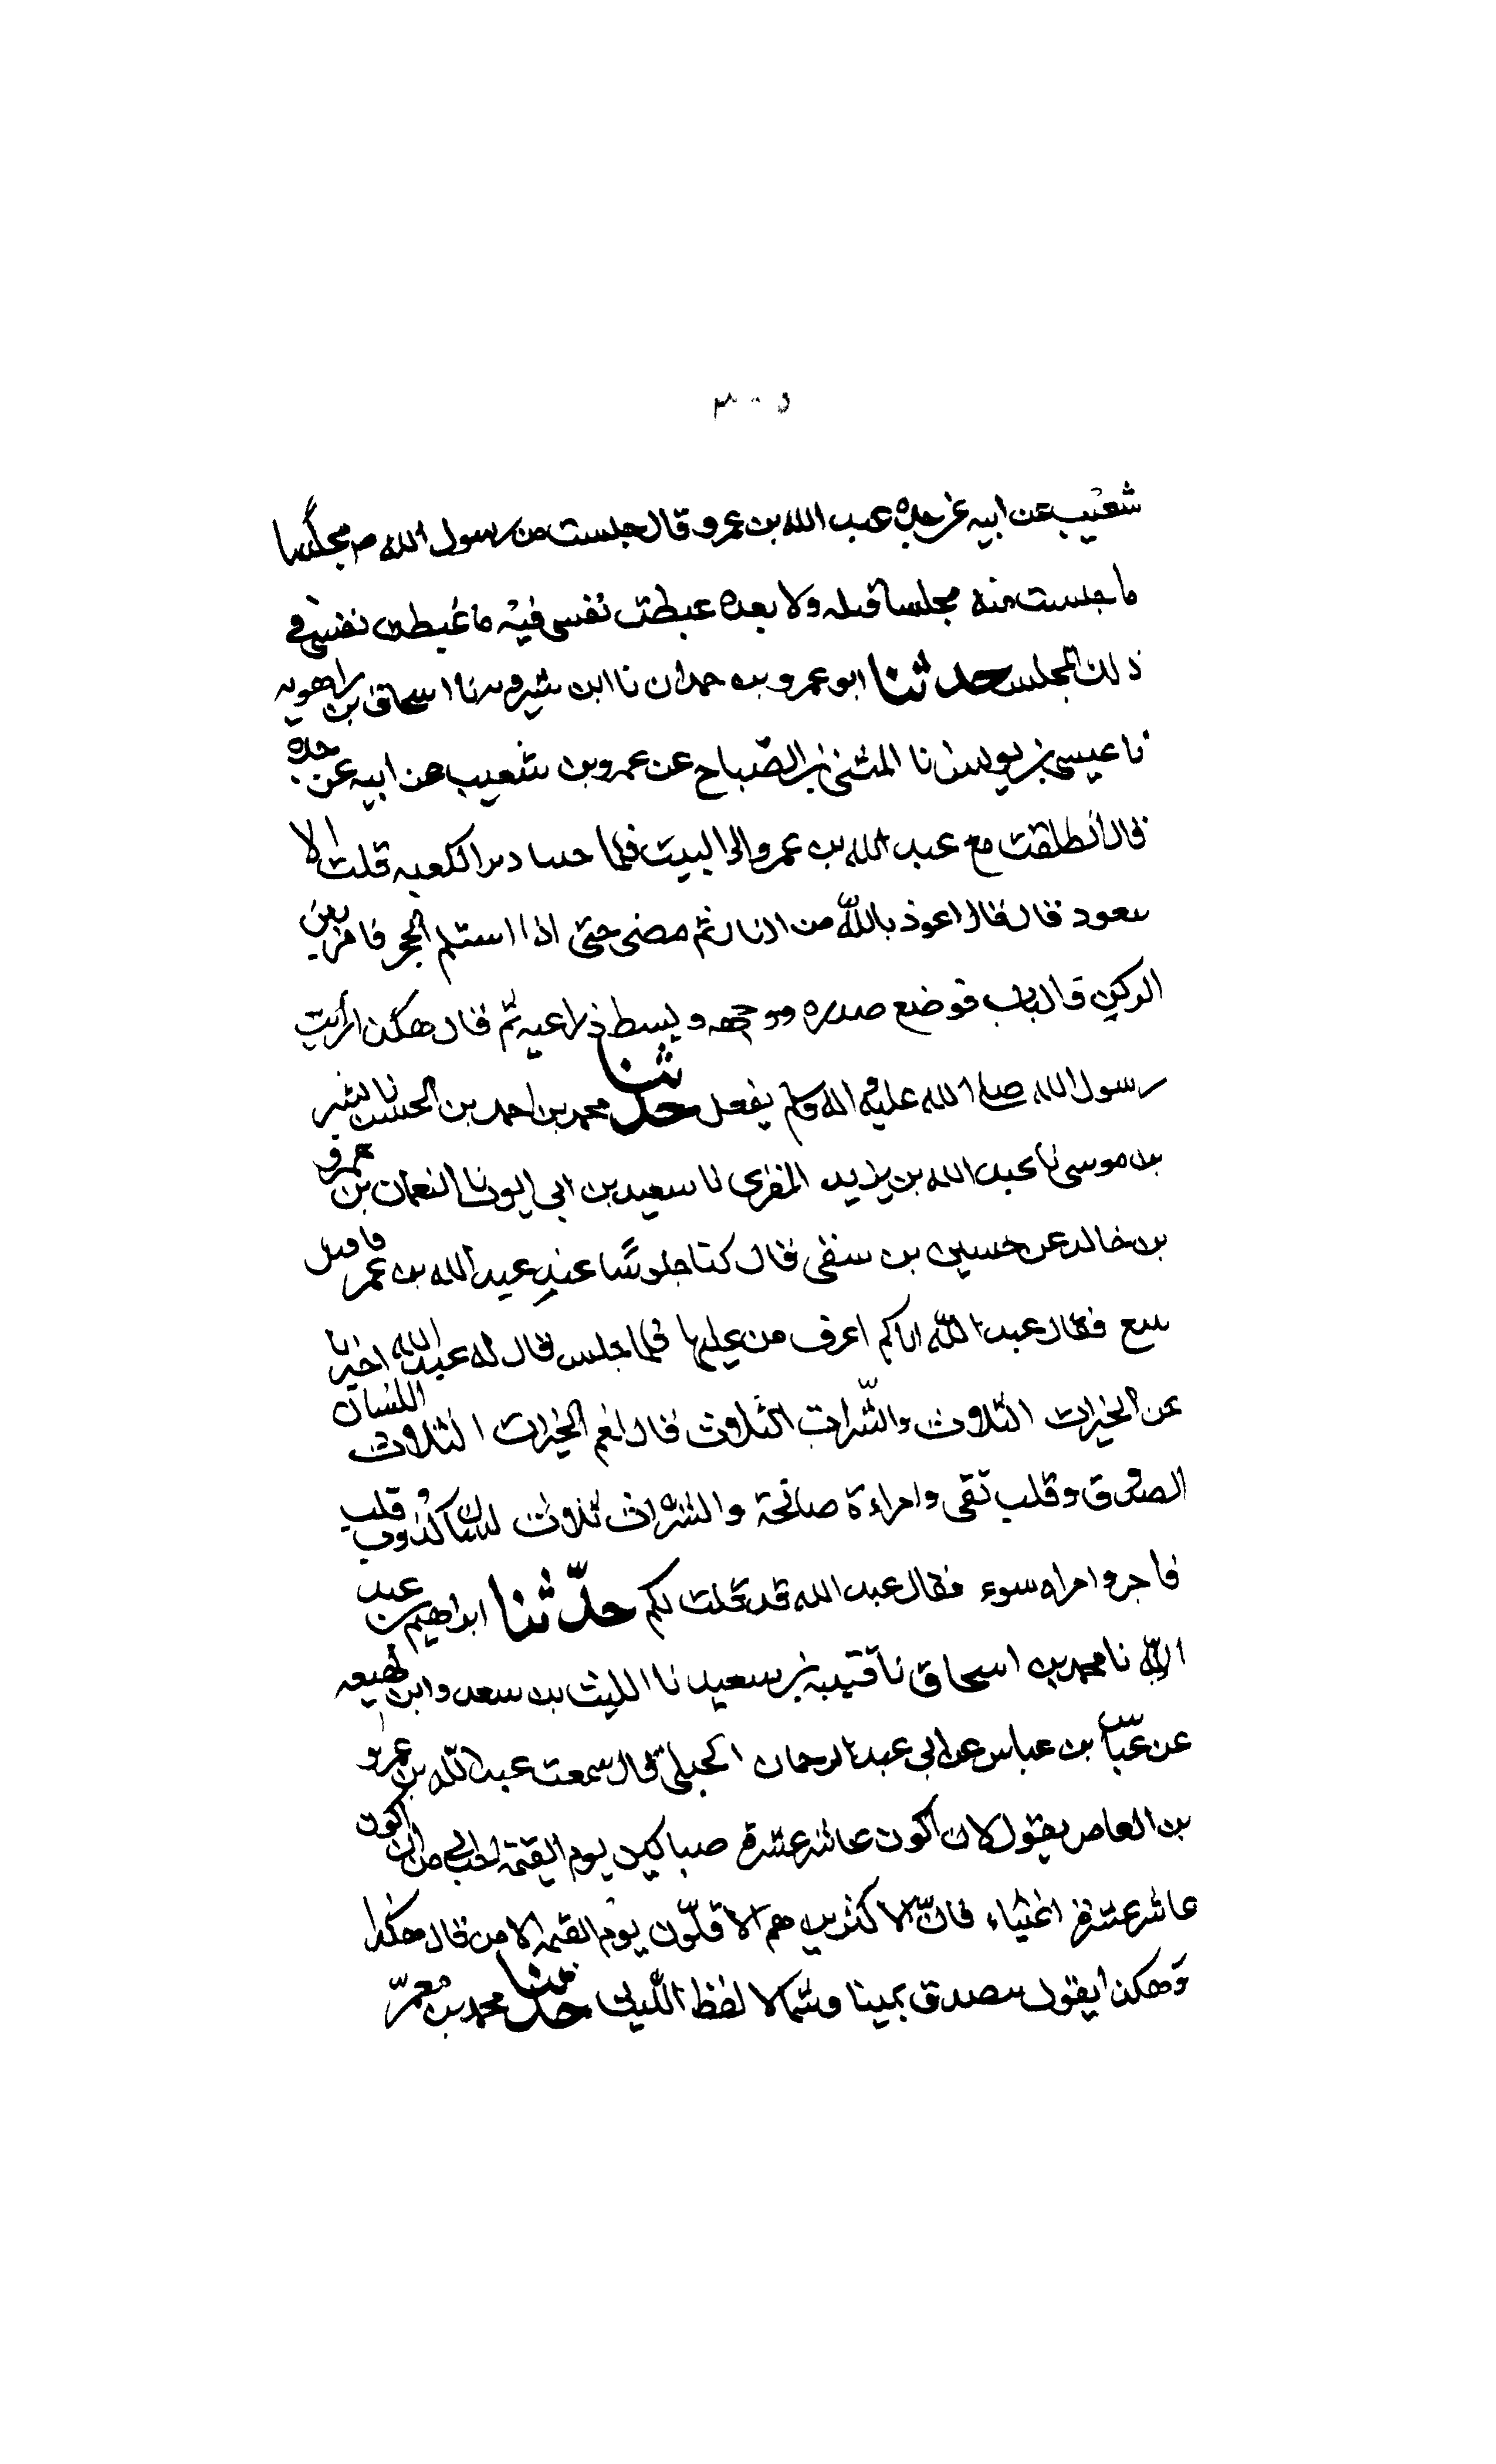 شعيب عن ابيه عن جده عبد الله بن عمرو قال جلست من رسول الله ص مجلسًا
ما جلست منه مجلسا قبله ولا بعده غبطت نفسى فيه ما غبطت نفسى فى
ذلك المجلس حدثنا ابو عمرو بن حمدان نا ابن شيرويه نا اسحاق بن راهويه
نا عيسى بن يونس نا المثنى بن الصّباح عن عمرو بن شعيب عن ابيه عن جده
قال انطلقت مع عبد الله بن عمرو الى البيت فلما جينا دبر الكعبه قلت الا
تتعوذ قال فقال اعوذ باللّٰه من النار ثم مضى حتى اذا استلم الحجر قام بين
الركن والباب فوضع صدره ووجهه وبسط ذراعيه ثم قال هكذا رأيت
رسول الله صلى الله عليه واله وسلم يفعل حدثنا محمد بن احمد بن الحسن نا بشر
بن موسى نا عبد الله بن يزيد المقرى نا سعيد بن ابى ايوب نا النعمان بن عمرو
بن خالد عن حسين بن شفى قال كنا جلوسًا عند عبد الله بن عمر فاقبل
تبيع فقال عبد اللّٰه اتاكم اعرف من عليها فلما جلس قال له عبد الله اخبرنا
عن الخيرات الثلاث والشّرات الثلاث قال نعم الخيرات الثلاث اللسان
الصدوق وقلب تقى وامراءة صالحة والشرات ثلاث لسان كذوب وقلب
فاجر وامراه سوء فقال عبد الله قد قلت لكم حدّثنا ابراهيم بن عبد
اللّٰه نا محمد بن اسحاق نا قتيبه بن سعيد نا الليث بن سعد وابن لهيعه
عن عياش بن عباس عن ابى عبد الرحمان الحبلى قال سمعت عبد اللّه بن عمرو
بن العاص يقول لان اكون عاشر عشرة مساكين يوم القيمة احب الى من ان اكون
عاشر عشرة اغنياء فانّ الاكثرين هم الاقلّون يوم القيمه الا من قال هكذا
وهكذا يقول يتصدق يمينا وشمالا لفظ اللّيث حدثنا محمد بن معمرّ